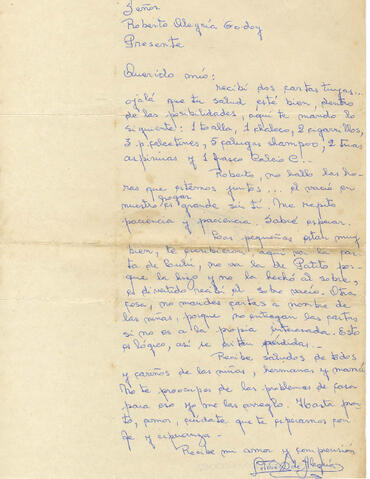 Señor
Roberto Alegría Godoy
Presente
Querido mío:
recibí dos cartas tuyas...
ojalá que tu salud, esté bien, dentro
de las posibilidades, aquí te mando lo
siguiente: 1 toalla, 1 chaleco, 2 cigarrillos,
3 p. calcetines, 5 calugas shampoo, 2 tiras
aspirinas y 1 frasco Calcio C!..
Roberto, no hallo las ho-
ras que estemos juntos... el vacío en
nuestro hogar es grande sin tí. Me repito
paciencia y paciencia. Sabré esperar.
Las pequeñas están muy
bien, te escribieron, aquí va la car-
ta de, no va la de Patito por-
que la hizo y no la hechó al sobre,
es divertido recibí el sobre vacío. Otra
cosa, no mandes cartas a nombre de
las niñas, porque no entregan las cartas
si no es a la propia interesada. Esto
es lógico, así se evitan pérdidas.-
Recibe saludos de todos
y cariños de las niñas, hermanas y mamá
No te preocupes de los problemas de casa
para eso yo me las arreglo. Hasta pron-
to, amor, cuídate que te esperamos con
fe y esperanza.-
Recibe mi amor y comprensión
de Alegría